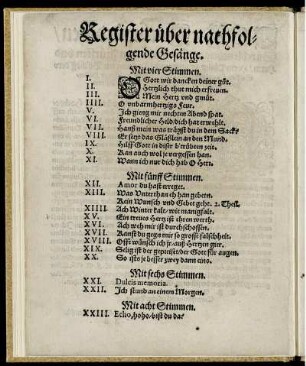 Register über nachfol-
gende Gesänge.
Mit vier Stimmen.
I. O Gott wir dancken deiner güt.
II. Hertzlich thut mich erfrewen.
III. Mein Hertz und gmüt.
IIII. O unbarmhertzigs Fewr.
V. Ich gieng mir nechten Abend spat.
VI. Freundlicher Held/dich hat erwehlt.
VII. Hanß mein was trägst du in dem Sack.
VIII. Er setzt das Gläßlein an den Mund.
IX. Hilff Gott in diser betrübten zeit.
X. Kan auch wol je vergessen han.
XI. Wann ich nur dich hab O Herr.
Mit fünff Stimmen.
XII. Amor du hast erreget.
XIII. Was Unterthan ich han geben.
Kein Wunsch und Gebet gehe. 2. Theil.
XIIII. Ach Winter kalt/wie mangfalt.
XV. Ein trewes Hertz ist ehren werth.
XVI. Ach weh mir ist durchschossen.
XVII. Kanst du gegn mir so grosse falschheit.
XVIII. Offt wünsch ich je/auß Hertzen gier.
XIX. Selig ist der gepreißt/der Gott für augen.
XX. So iste je besser zwey dann eins.
Mit sechs Stimmen.
XXI. Dulcis memoria.
XXII. Ich stund an einem Morgen.
Mit acht Stimmen.
XXIII. Echo, hoho, bist du da?